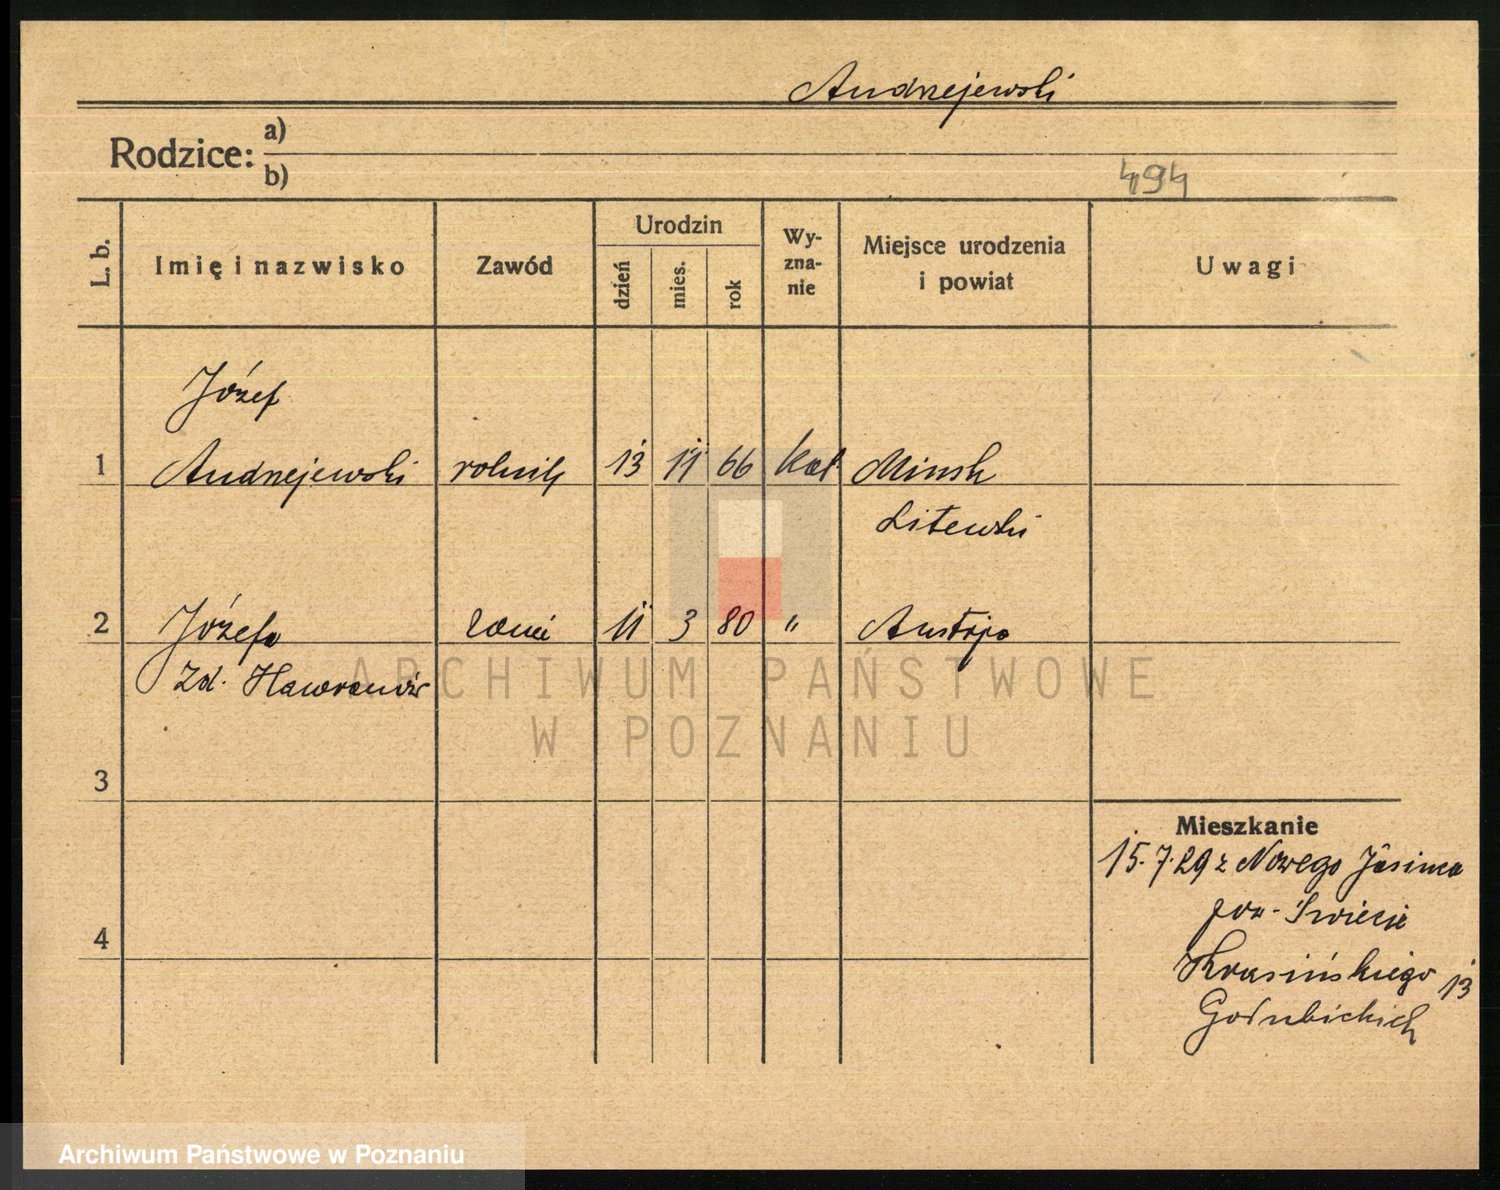 Andrzejewski
Rodzice: a)
b)
494
L. b. Imię i nazwisko Zawód Urodzin dzień mies. rok Wy-zna-nie Miejsce urodzenia i powiat Uwagi
Józef
1 Andrzejewski rolnik 13 11 66 kat Minsk
Litewski
2 Józefa 11 3 80 " Austrja
zd.
3
Mieszkanie
15.7.29 z Nowego Jasinca
pow. Swiecie
4
Krasińskiego 13
Gołubickich
ARCHIWUM PAŃSTWOWE
W POZNANIU
Archiwum Państwowe w Poznaniu